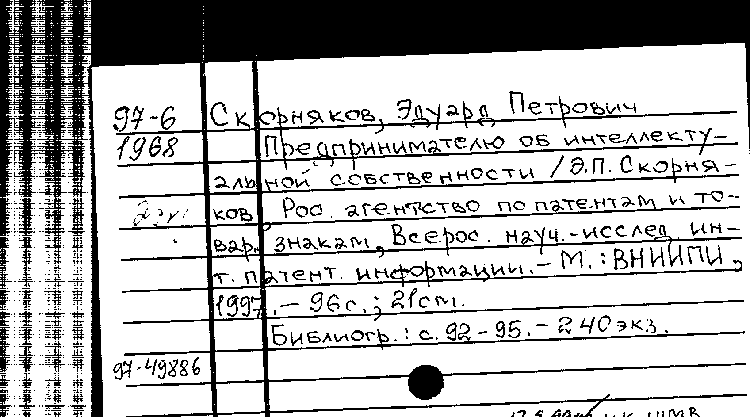 97-6 Скорняков, Эдуард Петрович
1968 Предпринимателю об интеллекту-
альной собственности / Э.П. Скорня-
ков, Рос. агентство по патентам и то-
вар. знакам, Всерос. науч.-исслед. ин-
т. патент. информации. - М. : ВНИИПИ,
1997. - 96 с. ; 21 cm.
Библиогр. : с. 92-95. - 240 экз.
97-49886